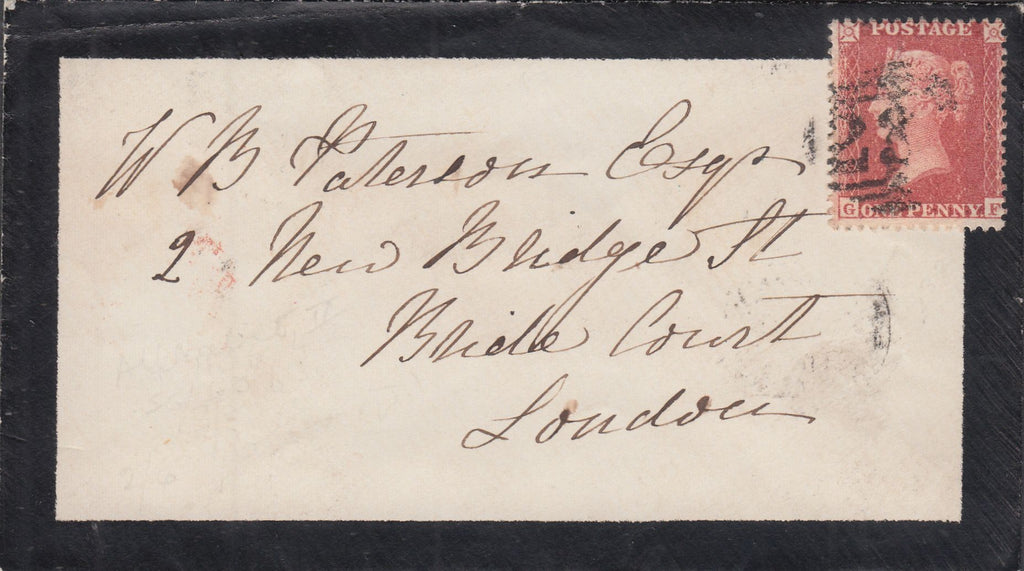 POSTAGE
G ONE PENNY F
W B Paterson Esqr
2 New Bridge St
Bride Court
London